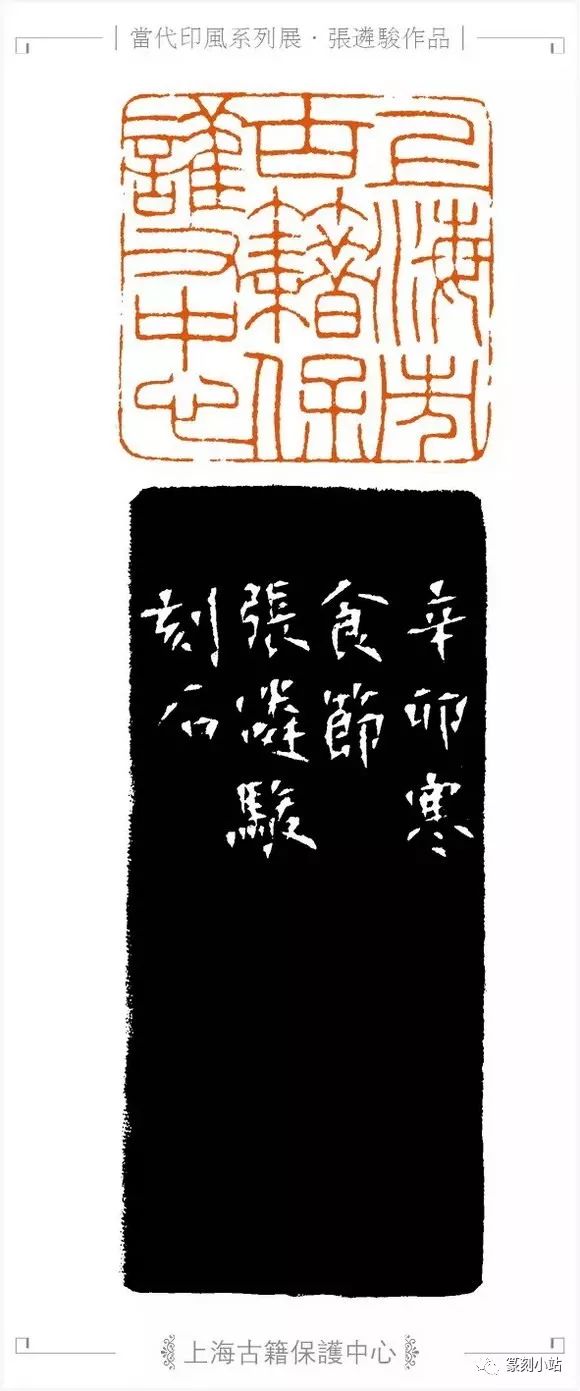 當代印風系列展·張遴駿作品
上海市
古籍保
護中心
辛卯寒
食節
張遴駿
刻石
上海古籍保護中心
篆刻小站